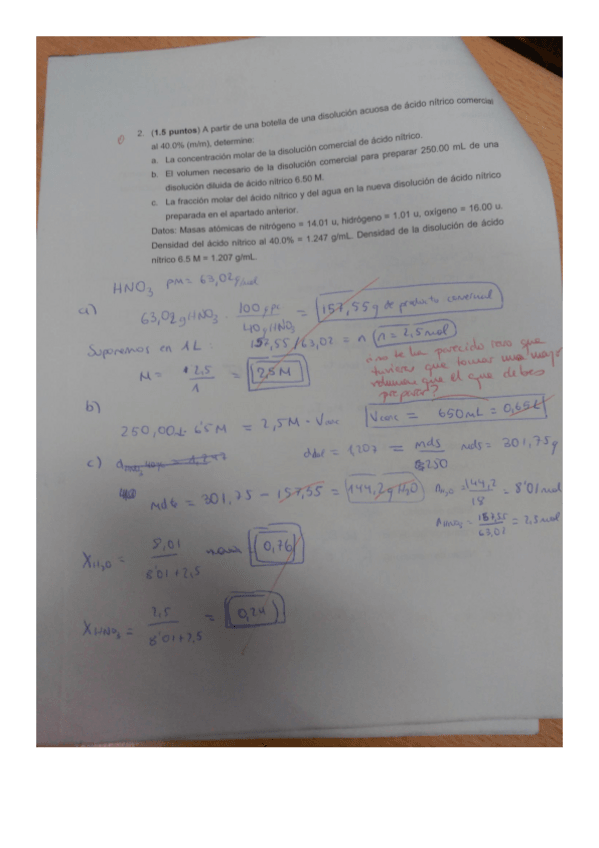 0
2. (1.5 puntos) A partir de una botella de una disolución acuosa de ácido nítrico comercial
al 40.0% (m/m), determine:
a. La concentración molar de la disolución comercial de ácido nítrico.
b. El volumen necesario de la disolución comercial para preparar 250.00 mL de una
disolución diluida de ácido nítrico 6.50 M.
c. La fracción molar del ácido nítrico y del agua en la nueva disolución de ácido nítrico
preparada en el apartado anterior.
Datos: Masas atómicas de nitrógeno = 14.01 u, hidrógeno = 1.01 u, oxígeno = 16.00 u.
Densidad del ácido nítrico al 40.0% = 1.247 g/mL. Densidad de la disolución de ácido
nítrico 6.5 M = 1.207 g/mL.
HNO3 PM = 63,02 g/mol
a) 63,02 g HNO3 · 100 g pc / 40 g HNO3 = 157,55 g de producto comercial
Suponemos en 1L: 157,55/63,02 = n n = 2,5 mol
M = 2,5 / 1 = 2,5 M
¿no te ha parecido raro que
tuvieras que tomar un mayor
volumen que el que debes
preparar?
b)
250,00 · 6'5 M = 2,5 M · Vconc Vconc = 650 mL = 0,65 L
c) ddis = 1207 = mds / 250 mds = 301,75 g
mds = 301,75 - 157,55 = 144,2 g H2O nH2O = 144,2 / 18 = 8'01 mol
nHNO3 = 157,55 / 63,02 = 2,5 mol
XH2O = 8,01 / 8'01 + 2,5 0,76
XHNO3 = 2,5 / 8'01 + 2,5 = 0,24